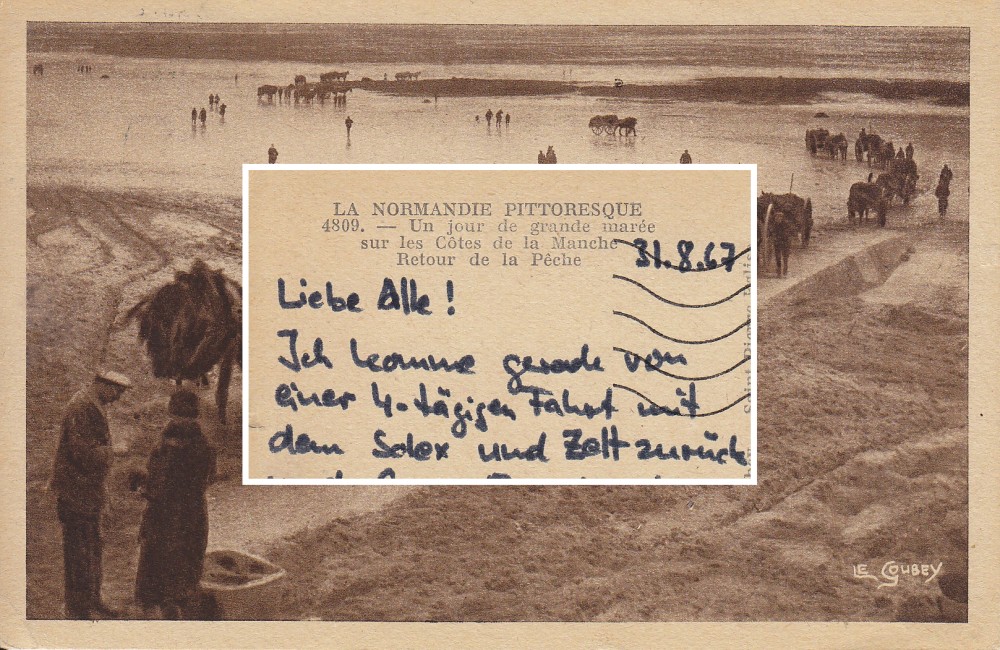 LA NORMANDIE PITTORESQUE
4809. — Un jour de grande marée
sur les Côtes de la Manche
Retour de la Pêche
31.8.67
Liebe Alle!
Ich komme gerade von
einer 4-tägigen Fahrt mit
dem Solex und Zelt zurück
LE GOUBEY